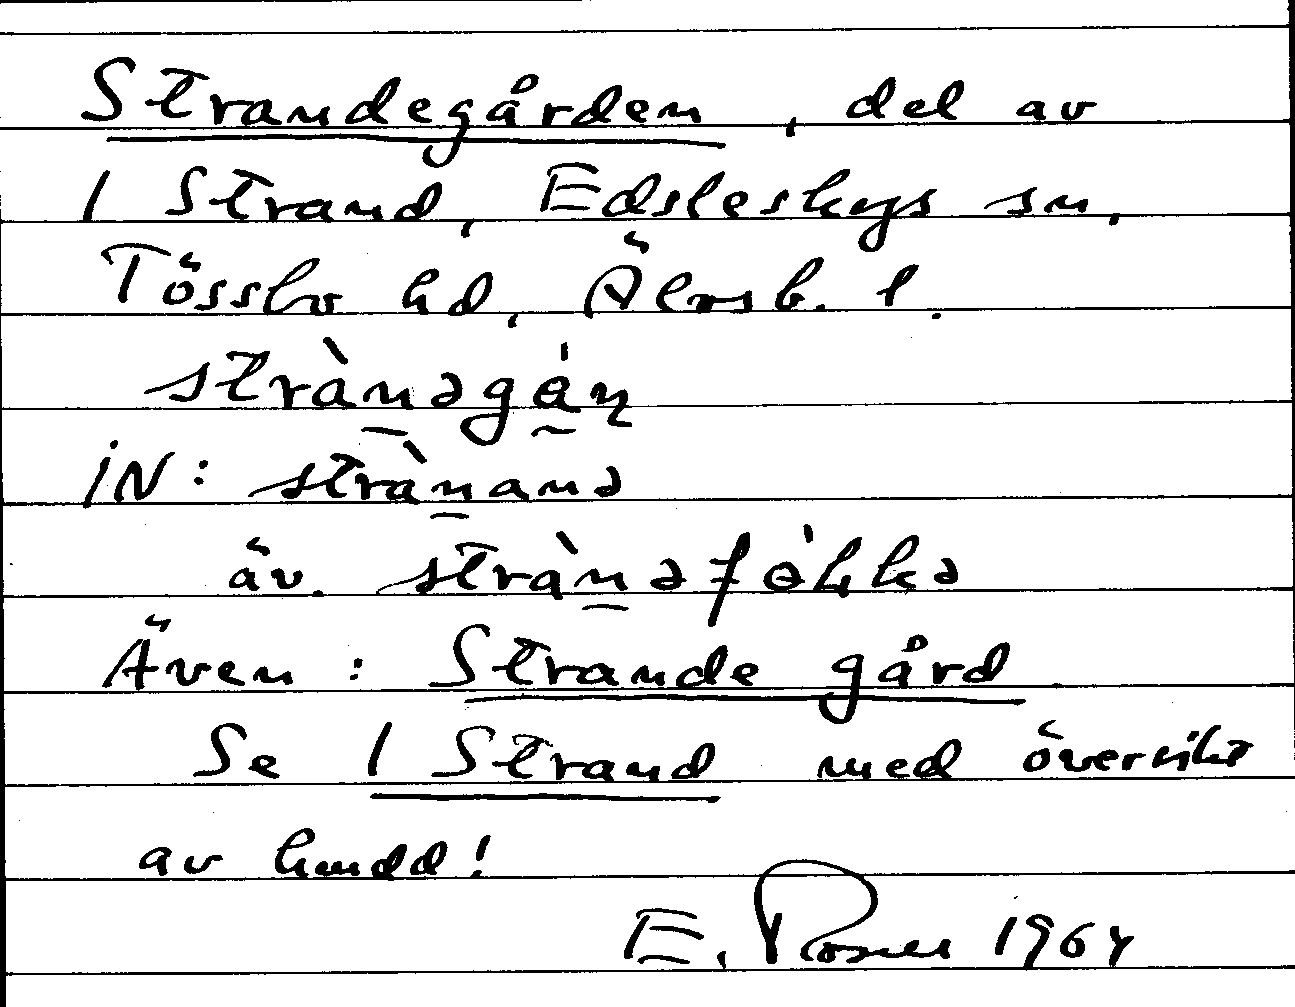 Strandegården, del av
1 Strand, Edsleskogs sn,
Tössbo hd, Älvsb. l.
strànəgán
IN: strànanə
äv. strànəfòkkə
Även: Strande gård
Se 1 Strand med översikt
av hmdd!
E. Rosell 1964